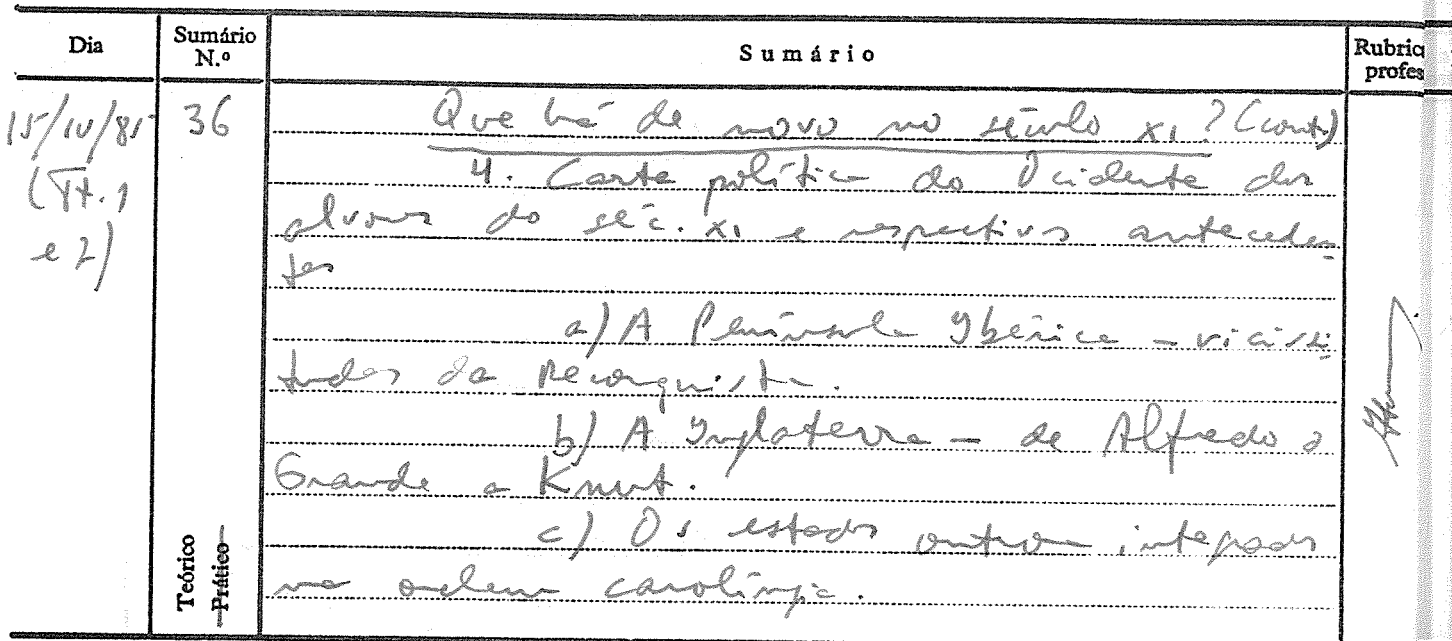 Dia
Sumário N.º
Sumário
Rubric
profes
15/IV/85
(Tt. 1
e 2)
36
Que há de novo no século XI? (cont.)
4. Carta política do Ocidente dos
alvores do séc. XI e respectivos anteceden-
tes
a) A Península Ibérica - vicissi-
tudes da Reconquista.
b) A Inglaterra - de Alfredo o
Grande a Knut.
c) Os estados outrora integrados
na ordem carolíngia.
Teórico
Prático